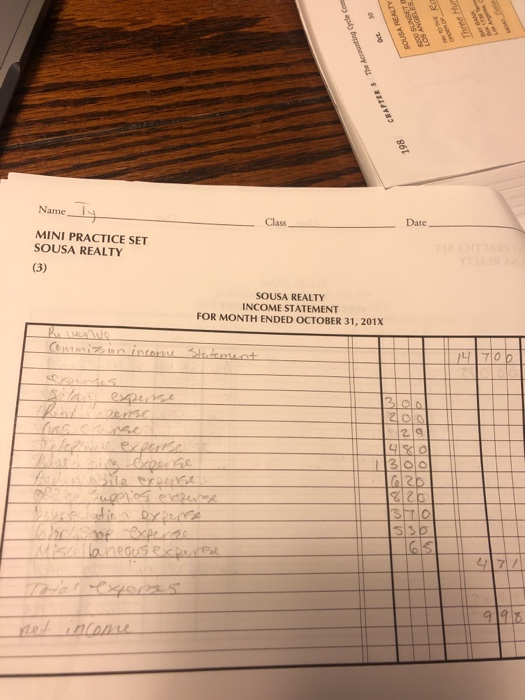 198 CHAPTER 5 The Accounting Cycle Com
Oct. 30
SOUSA REALTY
LOS ANGELES
PAY TO THE
ORDER OF
Name Ty
Class
Date
MINI PRACTICE SET
SOUSA REALTY
(3)
SOUSA REALTY
INCOME STATEMENT
FOR MONTH ENDED OCTOBER 31, 201X
Revenue
Commission income Statement 14 700
expenses
Salary expense 300
Rent expense 200
Gas expense 29
Telephone expense 480
expense 1 300
Automobile expense 620
Office Supplies expense 820
expense 370
expense 530
Miscellaneous expense 65
Total expenses 471
net income 998